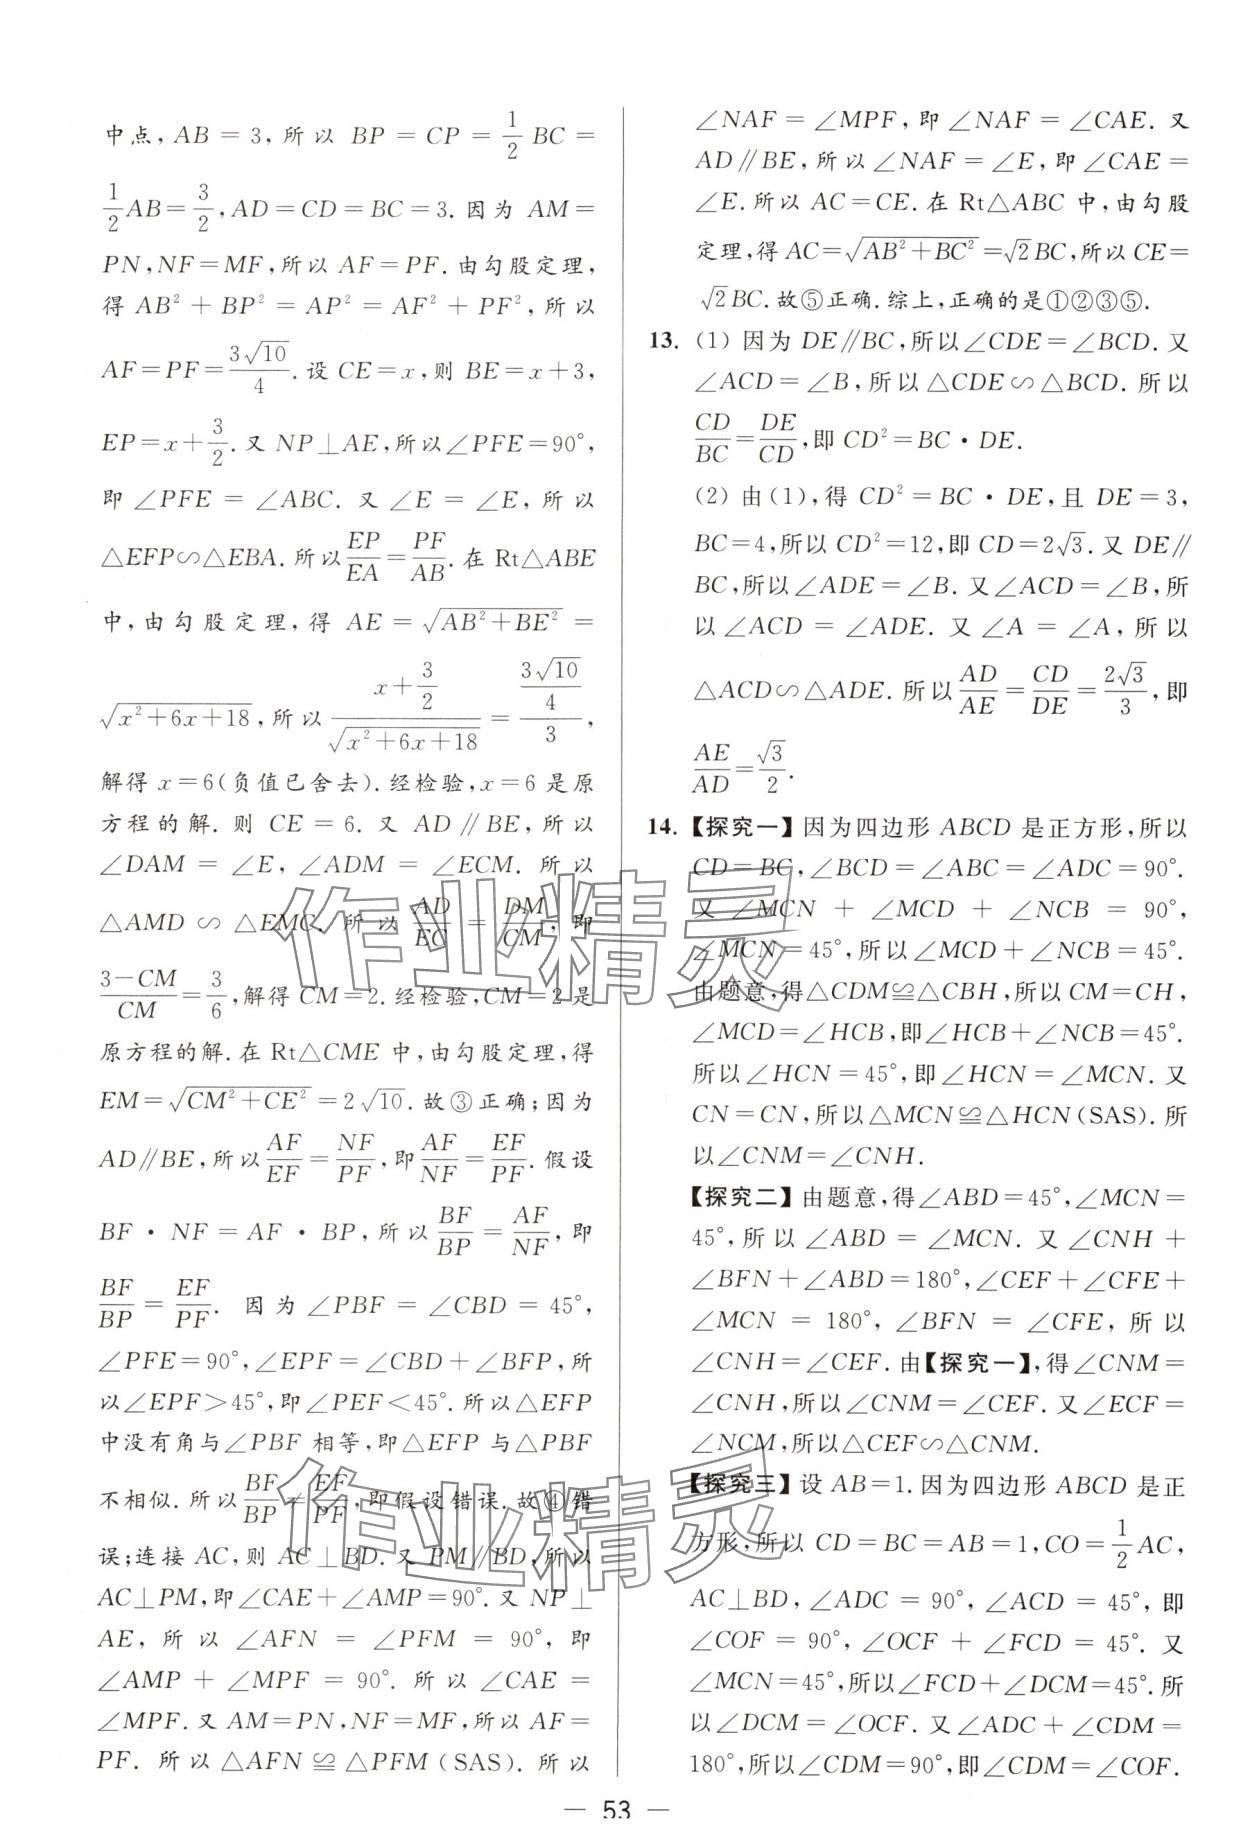 中点,AB=3,所以 BP=CP=1/2 BC=
1/2 AB=3/2,AD=CD=BC=3.因为 AM=
PN,NF=MF,所以 AF=PF.由勾股定理,
得 AB²+BP²=AP²=AF²+PF²,所以
AF=PF=3√10/4.设 CE=x,则 BE=x+3,
EP=x+3/2.又 NP⊥AE,所以∠PFE=90°,
即 ∠PFE=∠ABC.又 ∠E=∠E,所以
△EFP∽△EBA.所以EP/EA=PF/AB.在 Rt△ABE
中,由勾股定理,得 AE=√(AB²+BE²)=
√(x²+6x+18),所以 (x+3/2)/√(x²+6x+18)=(3√10/4)/3,
解得 x=6(负值已舍去).经检验,x=6 是原
方程的解.则 CE=6.又 AD∥BE,所以
∠DAM=∠E,∠ADM=∠ECM.所以
△AMD∽△EMC.所以 AD/EC=DM/CM,即
(3-CM)/CM=3/6,解得 CM=2.经检验,CM=2 是
原方程的解.在 Rt△CME 中,由勾股定理,得
EM=√(CM²+CE²)=2√10.故③正确;因为
AD∥BE,所以AF/EF=NF/PF,即AF/NF=EF/PF.假设
BF·NF=AF·BP,所以 BF/BP=AF/NF,即
BF/BP=EF/PF.因为 ∠PBF=∠CBD=45°,
∠PFE=90°,∠EPF=∠CBD+∠BFP,所
以∠EPF>45°,即∠PEF<45°.所以△EFP
中没有角与∠PBF 相等,即△EFP 与△PBF
不相似.所以BF/BP≠EF/PF,即假设错误.故④错
误;连接 AC,则 AC⊥BD.又 PM∥BD,所以
AC⊥PM,即∠CAE+∠AMP=90°.又 NP⊥
AE,所以 ∠AFN=∠PFM=90°,即
∠AMP+∠MPF=90°.所以 ∠CAE=
∠MPF.又 AM=PN,NF=MF,所以 AF=
PF.所以 △AFN≌△PFM(SAS).所以
∠NAF=∠MPF,即 ∠NAF=∠CAE.又
AD∥BE,所以 ∠NAF=∠E,即 ∠CAE=
∠E.所以 AC=CE.在 Rt△ABC 中,由勾股
定理,得 AC=√(AB²+BC²)=√2BC,所以 CE=
√2BC.故⑤正确.综上,正确的是①②③⑤.
13. (1) 因为 DE∥BC,所以∠CDE=∠BCD.又
∠ACD=∠B,所以 △CDE∽△BCD.所以
CD/BC=DE/CD,即 CD²=BC·DE.
(2) 由(1),得 CD²=BC·DE,且 DE=3,
BC=4,所以 CD²=12,即 CD=2√3.又 DE∥
BC,所以 ∠ADE=∠B.又∠ACD=∠B,所
以 ∠ACD=∠ADE.又 ∠A=∠A,所以
△ACD∽△ADE.所以AD/AE=CD/DE=2√3/3,即
AE/AD=√3/2.
14.【探究一】因为四边形 ABCD 是正方形,所以
CD=BC,∠BCD=∠ABC=∠ADC=90°.
又 ∠MCN+∠MCD+∠NCB=90°,
∠MCN=45°,所以∠MCD+∠NCB=45°.
由题意,得△CDM≌△CBH,所以 CM=CH,
∠MCD=∠HCB,即∠HCB+∠NCB=45°.
所以∠HCN=45°,即∠HCN=∠MCN.又
CN=CN,所以△MCN≌△HCN(SAS).所
以∠CNM=∠CNH.
【探究二】由题意,得∠ABD=45°,∠MCN=
45°,所以 ∠ABD=∠MCN.又∠CNH+
∠BFN+∠ABD=180°,∠CEF+∠CFE+
∠MCN=180°,∠BFN=∠CFE,所以
∠CNH=∠CEF.由【探究一】,得∠CNM=
∠CNH,所以∠CNM=∠CEF.又∠ECF=
∠NCM,所以△CEF∽△CNM.
【探究三】设 AB=1.因为四边形 ABCD 是正
方形,所以 CD=BC=AB=1,CO=1/2 AC,
AC⊥BD,∠ADC=90°,∠ACD=45°,即
∠COF=90°,∠OCF+∠FCD=45°.又
∠MCN=45°,所以∠FCD+∠DCM=45°.所
以∠DCM=∠OCF.又∠ADC+∠CDM=
180°,所以∠CDM=90°,即∠CDM=∠COF.
作业精灵
作业精灵
— 53 —